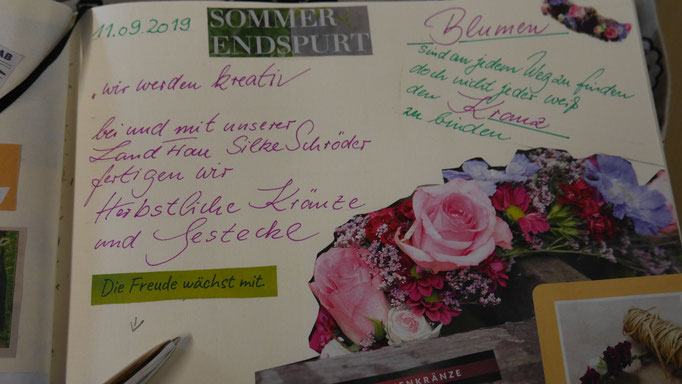 11.09.2019
SOMMER
ENDSPURT
wir werden kreativ
bei und mit unserer
LandFrau Silke Schröder
fertigen wir
Herbstliche Kränze
und Gestecke
Die Freude wächst mit.
Blumen
sind an jedem Weg zu finden
doch nicht jeder weiß
den Kranz
zu binden
ENKRÄNZE